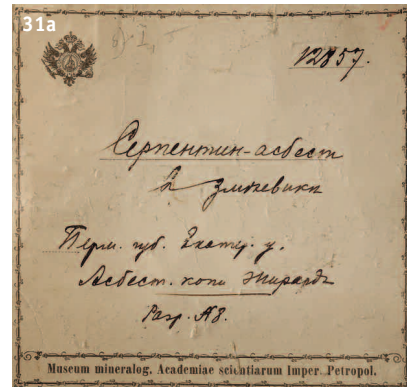 31a
12857.
Серпентин-асбест
в змѣевикѣ
Перм. губ. Екатер. у.
Асбест. копи Жирардъ
Разр. А8.
Museum mineralog. Academiae scientiarum Imper. Petropol.